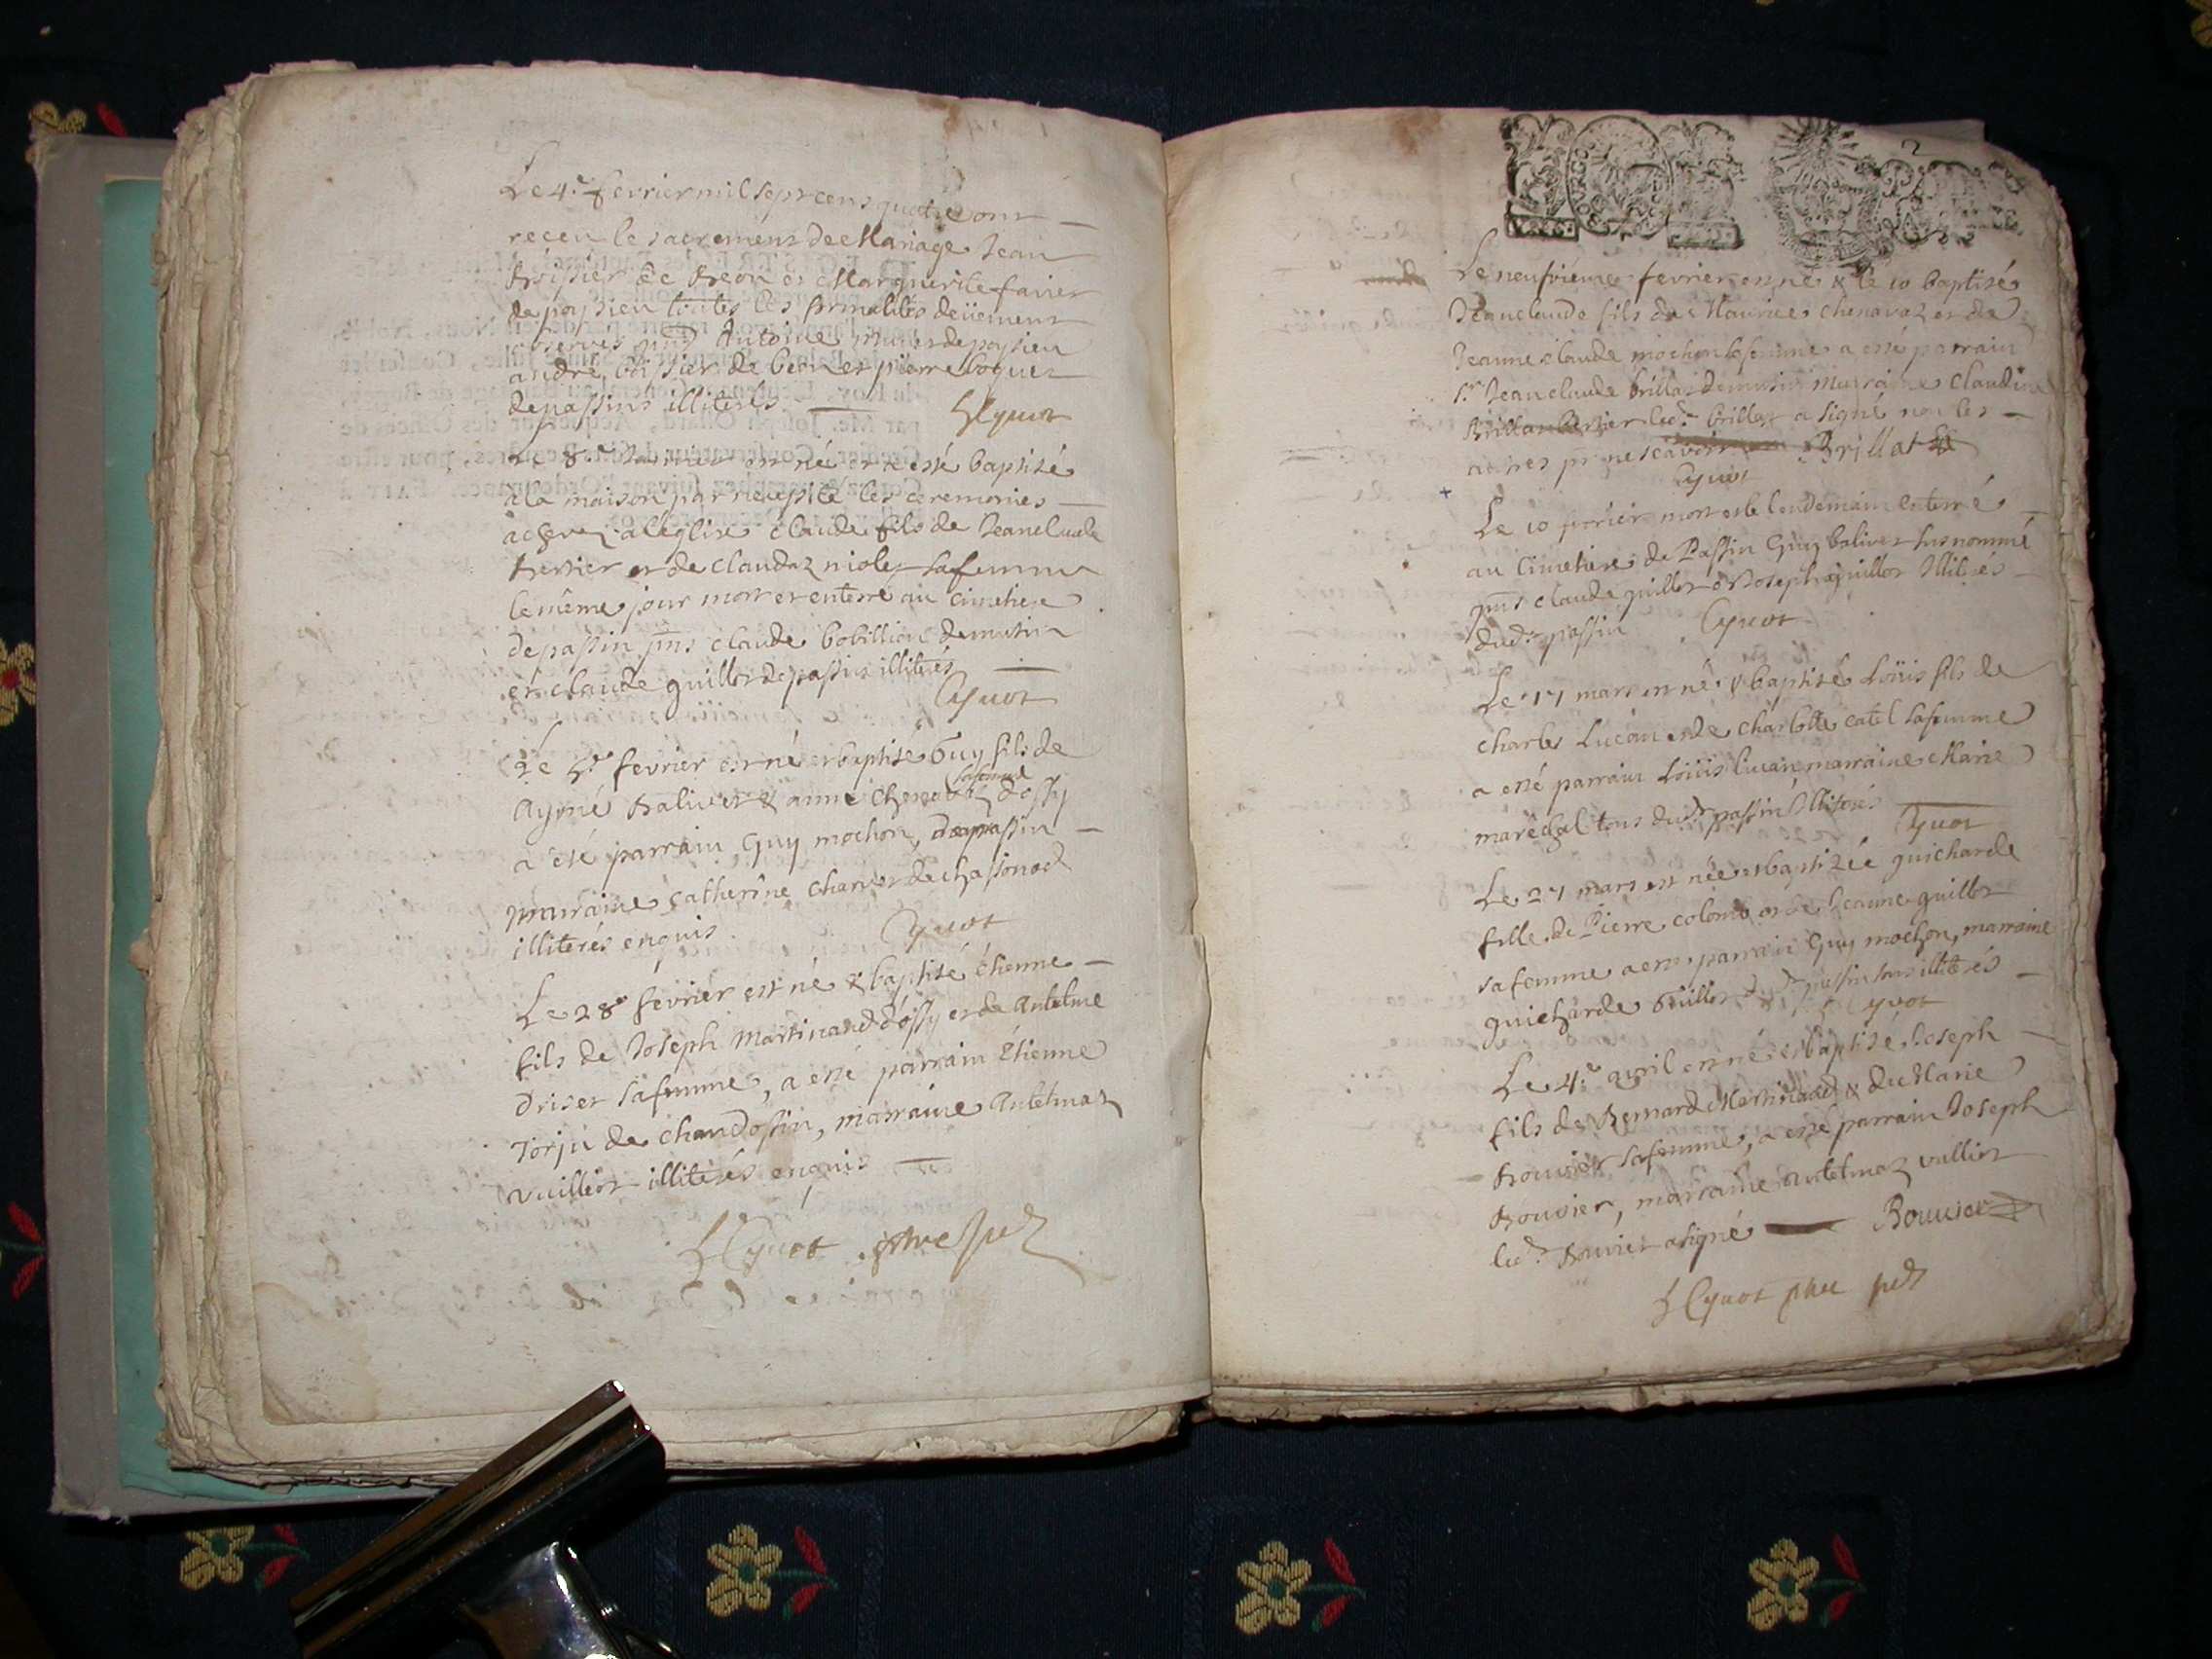 Le 4.e fevrier mil sept cens quatre ont
receu le sacrement de Mariage Jean
de Beon et Marguerite
de poysieu toutes les formalites deüement
observes Antoine de poysieu
andre de beon et pierre
de passins illiterés Cyuot
Le 8.e est né et a esté baptisé
a la maison par necessité les ceremonies
achevez a l'eglise claude fils de Jeanclaude
et de claudaz niolet sa femme
le même jour mort et enterré au cimetiere
de passin pnts claude bobillion de musin
et claude guillot de passins illiterés
Cyuot
Le 5.e fevrier est né et baptisé Guy fils de
Aymé Balivet & anne chenavaz sa femme d'ossy
a esté parrain Guy mochon, de passin
marraine catherine charvet de chassonod
illiterés enquis. Cyuot
Le 28e fevrier est né & baptisé étienne
fils de Joseph Martinand d'ossy et de Antelme
driset sa femme, a esté parrain Etienne
de chandossin, marraine Antelmaz
vuilliot illiterés enquis
Cyuot
2
Le neufvieme fevrier est né & le 10 baptisé
Jeanclaude fils de Maurice chenavaz et de
Jeanne claude mochon sa femme a esté parrain
s.r Jeanclaude brillat de musin Marraine Claudine
Brillat led.t brillat a signé non les
autres pr ne scavoir Brillat
Cyuot
+
Le 10 fevrier mort et le lendemain enterré
au Cimetiere de Passin Guy balivet susnommé
pnts claude guillot et Joseph guillot Illiterés
dud.t passin Cyuot
Le 17 mars est né & baptisé Loüis fils de
charles Lucan et de charlotte catel sa femme
a esté parrain Loüis lucan, marraine Marie
maréchal tous dud.t passin Illiterés
Cyuot
Le 27 mars est née et baptizée guicharde
fille de Pierre colomb et de Jeanne guillot
sa femme a esté parrain Guy mochon, marraine
guicharde Guillot dud.t passin tous illiterés
Cyuot
Le 4.e avril est né et baptisé Joseph
fils de Bernard Martinand & de Marie
Bouvier sa femme, a esté parrain Joseph
Bouvier, marraine antelmaz vulliot
led.t Bouvier a signé Bouuier
Cyuot